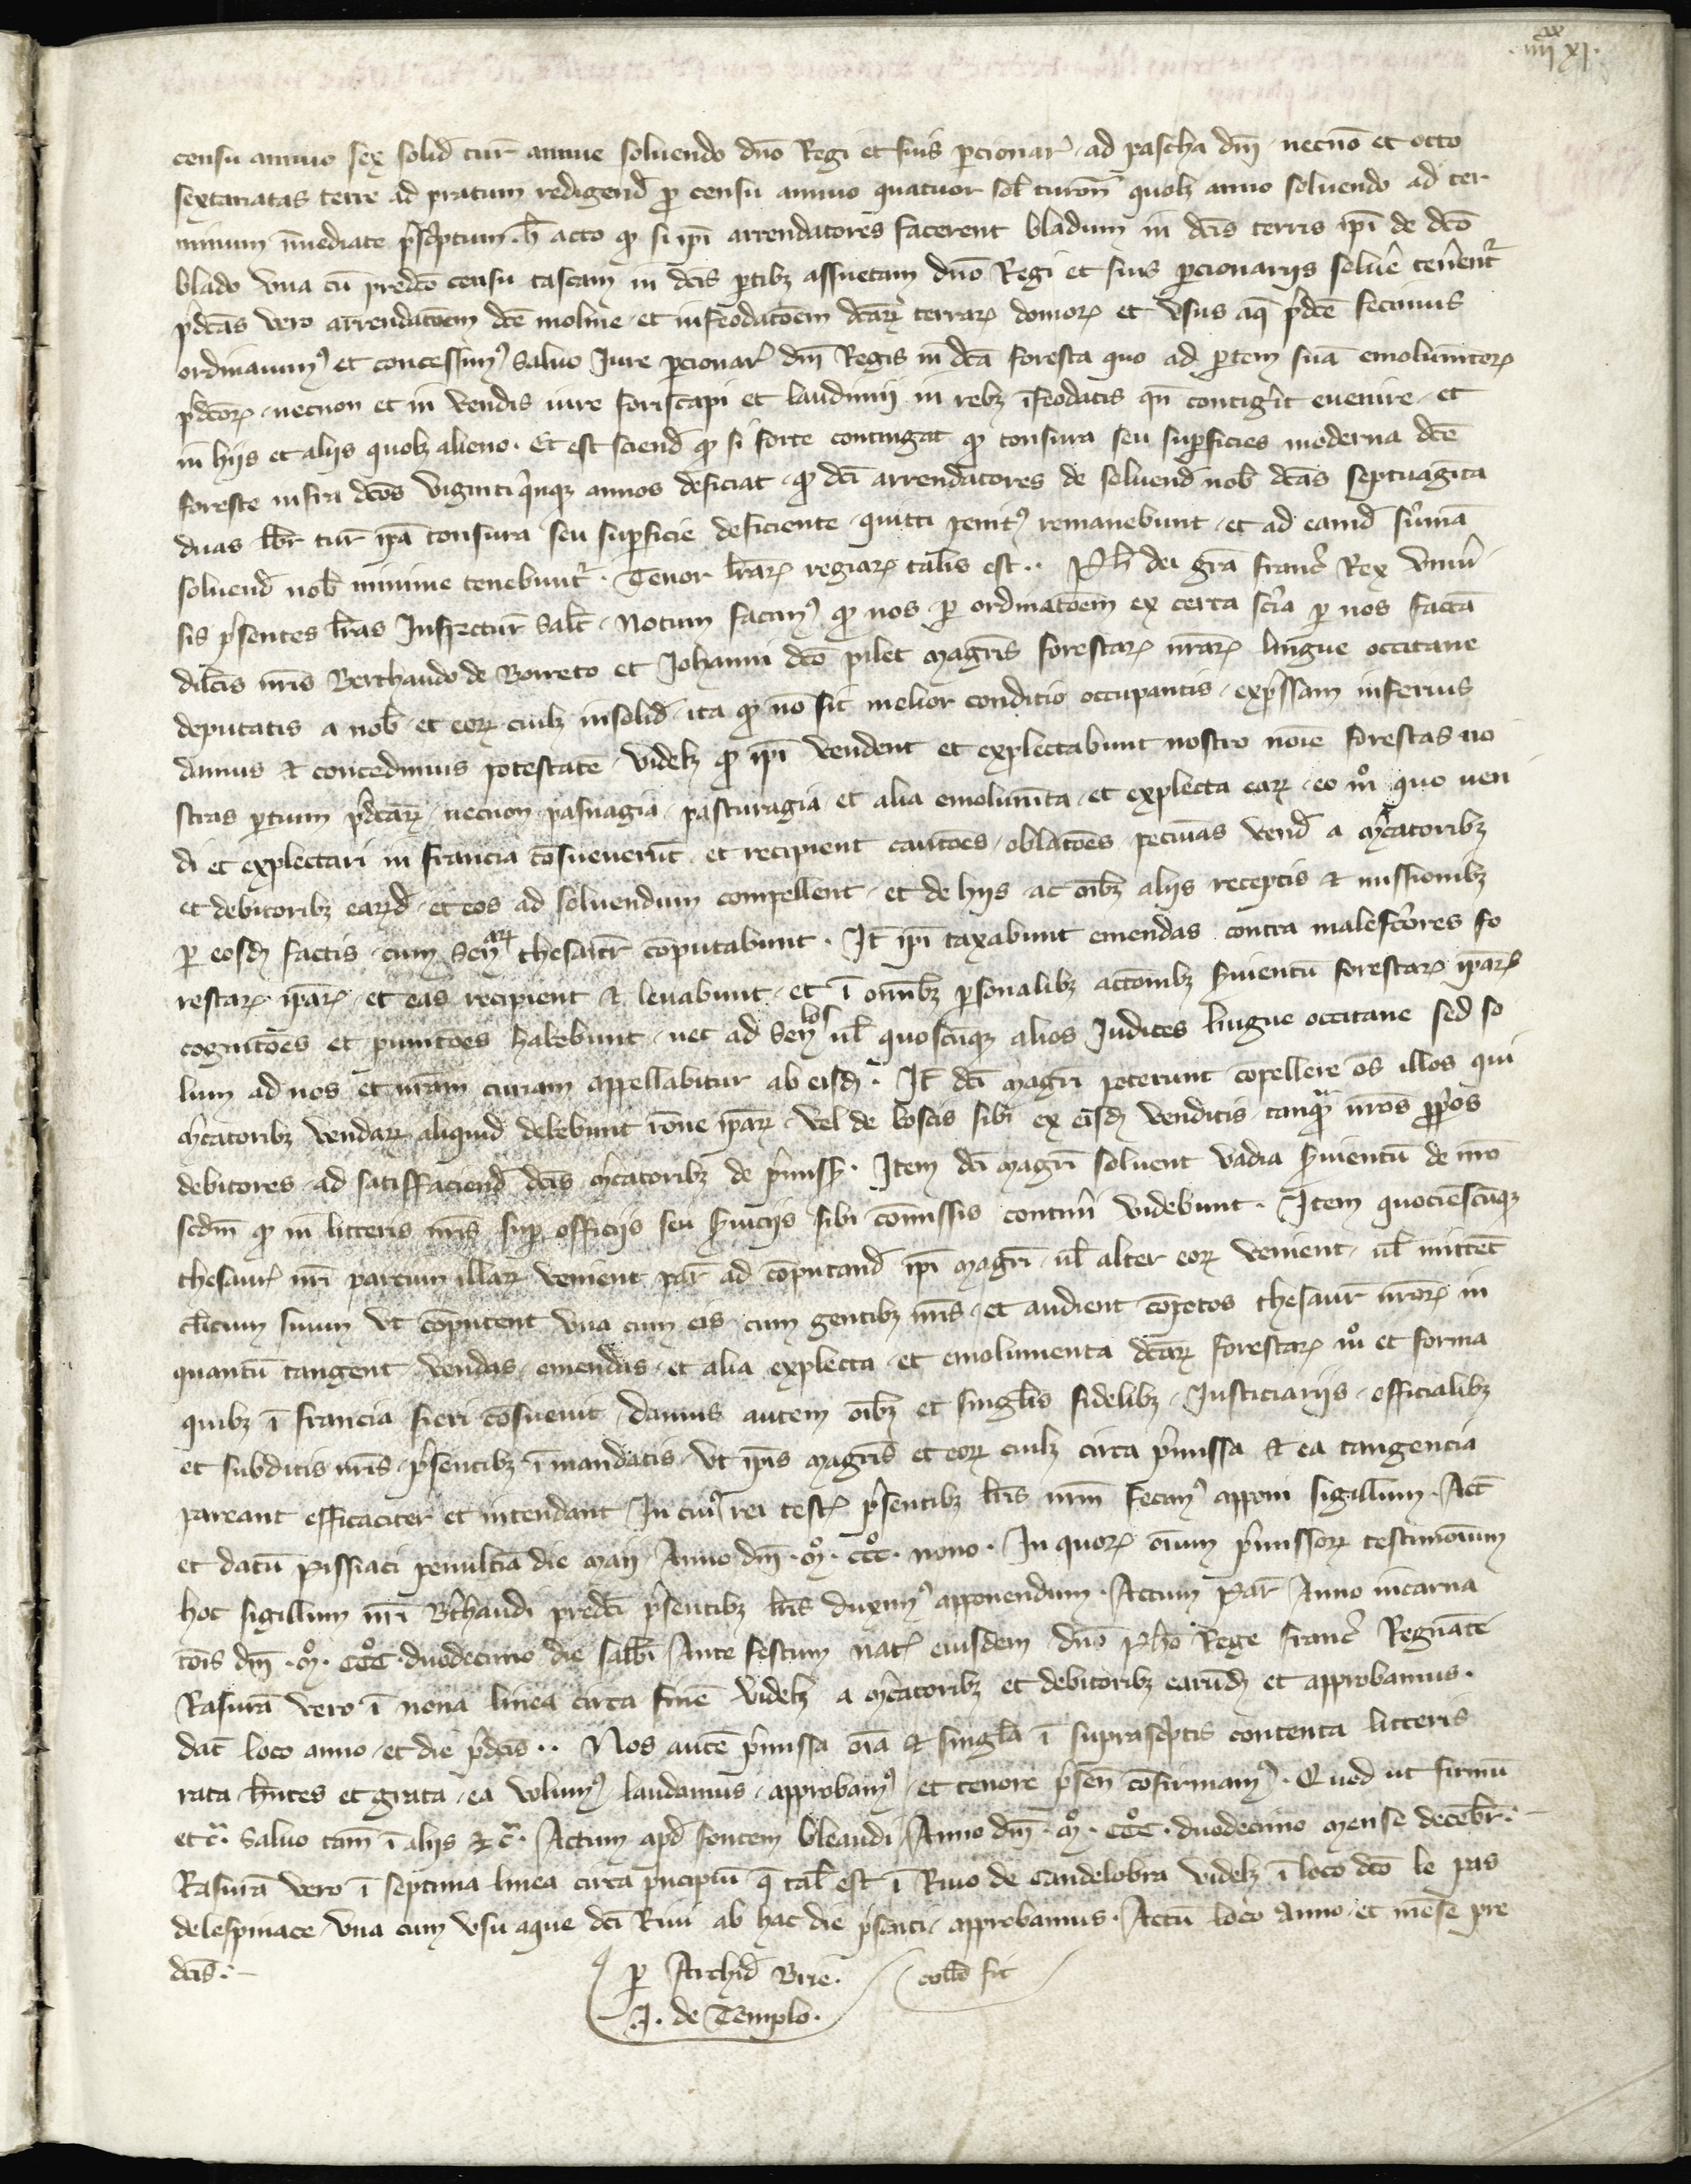 .iiii^xx xi.
censu annuo sex solid tur̄ annue soluendo dn̄o Regi et suis p̱cionar̄ ad pascha dn̄i necnō et octo
sextariatas terre ad pratum redigend̄ p̱ censu annuo quatuor sol̄ turon̄ quolꝫ anno soluendo ad ter
minum īmediate p̄sc̄ptum. h̄ acto qꝫ si ip̄i arrendatores facerent bladum in dc̄is terris ip̄i de dc̄o
blado vna cū predc̄o censu tascam in dc̄is p̱tibꝫ assuetam dn̄o Regi et suis p̱cionariis soluē̄ tenēnt̄
p̄dc̄as vero arrendatōem dc̄e moline et infeodatōem dc̄aꝝ terraꝝ domoꝝ et vsus aq̄ p̄dc̄e fecimus
ordinauimꝰ et concessimꝰ saluo Iure p̱cionar̄ dn̄i Regis in dc̄a foresta quo ad p̱tem suā emolumētoꝝ
p̄dc̄oꝝ necnon et in vendis iure foriscapi et laudimii in rebꝫ īfeodatis qn̄ contig̱it euenire et
in hiis et aliis quolꝫ alieno. Et est sciend̄ qꝫ si forte contingat qꝫ tonsura seu sup̱ficies moderna dc̄e
foreste infra dc̄os viginti q̄inqꝫ annos deficiat qꝫ dc̄i arrendatores de soluend̄ nob̄ dc̄as septuaginta
duas lbr̄ tur̄ ip̄a tonsura seu sup̱ficie deficiente quitti penitꝰ remanebunt et ad eamd̄ sūmā
soluend̄ nob̄ minime tenebunt̄. Tenor lr̄aꝝ regiaꝝ talis est.. Ph̄ dei grā franc̄ Rex vniū̄
sis p̄sentes lr̄as Inspectur̄ Salt̄. Notum facimꝰ qꝫ nos p̱ ordinatōem ex certa sc̄ia p̱ nos factā
dilc̄is nr̄is Berthaudo de Borreto et Iohanni dc̄o pilet magr̄is forestaꝝ nr̄aꝝ lingue occitane
deputatis a nob̄ et eoꝝ cuilꝫ insolid̄ ita qꝫ nō sit melior conditio occupantis exp̄ssam inferius
damus & concedimus potestatē videlꝫ qꝫ ip̄i vendent et explectabunt nostro noīe forestas no
stras p̱tium p̄dc̄aꝝ necnon pasnagia pasturagia et alia emolumēta et explecta eaꝝ eo mͦ quo uen
di et explectari in francia cōsueuerūt et recipient cautōes oblatōes pecuīas vend̄ a m̄catoribꝫ
et debitoribꝫ eaꝝd̄ et eos ad soluendum compellent et de hiis ac oībꝫ aliis receptis & missionibꝫ
p̱ eosd̄ factis cum Sen̄ aꝝ thesaur̄ cōputabunt. It̄ ip̄i taxabunt emendas contra malefc̄ores fo
restaꝝ ip̄aꝝ et eas recipient & leuabunt et ī omnibꝫ p̱sonalibꝫ actōnibꝫ s̱uientū forestaꝝ ip̄aꝝ
cognitōes et punitōes habebunt nec ad Sen̄ los ul̄ quoscūqꝫ alios Iudices lingue occitane sed so
lum ad nos et nr̄am curiam appellabitur ab eisd̄. It̄ dc̄i magr̄i poterunt cōpellere oēs illos qui
m̄catoribꝫ vendaꝝ aliquid debebunt rōne ip̄aꝝ vel de boscis sibi ex eisd̄ venditis tanq̄ nr̄os p̱pos
debitores ad satisfaciend̄ dc̄is m̄catoribꝫ de p̄miss̄. Item dc̄i magr̄i soluent vadia s̱uientū de nr̄o
scdm̄ qꝫ in litteris nr̄is sup̱ officiis seu s̱uiciis sibi cōmissis contin̄i videbunt. Item quociēscūqꝫ
thesaur̄ nr̄i partium illaꝝ venient par̄ ad cōputand̄ ip̄i magr̄i ul̄ alter eoꝝ venient ul̄ mittēt
cl̄icum suum vt cōputent vna cum eis cum gentibꝫ nr̄is et audient cōpotos thesaur̄ nr̄oꝝ in
quantū tangent vendas emendas et alia explecta et emolumenta dc̄aꝝ forestaꝝ mͦ et forma
quibꝫ ī francia fieri cōsueuit damus autem oībꝫ et singl̄is fidelibꝫ Iusticiariis officialibꝫ
et subditis nr̄is p̄sentibꝫ ī mandatis vt ip̄is magr̄is et eoꝝ cuilꝫ circa p̄missa & ea tangencia
pareant efficaciter et intendant In cuiꝰ rei test̄ p̄sentibꝫ lr̄is nr̄m fecimꝰ apponi sigillum. Act̄
et datū pissiaci penultiā die maii Anno dn̄i .mͦ. cccͦ. nono. In quoꝝ oīum p̄missoꝝ testimonium
hoc sigillum nr̄i Ḇthaudi predc̄i p̄sentibꝫ lr̄is duximꝰ apponendum. Actum par̄ Anno incarna
tōis dn̄i .mͦ. cccͦ. duodecimo die sabb̄i Ante festum nat̄ eiusdem dn̄o Ph̄o Rege franc̄ Regnāte
Rasurā vero ī nona linea circa finē videlꝫ a m̄catoribꝫ et debitoribꝫ earūd̄ et approbamus.
dat̄ loco anno et die p̄dc̄is.. Nos autē p̄missa oīa & singl̄a ī suprasc̄ptis contenta litteris
rata hn̄tes et grata ea volumꝰ laudamus approbamꝰ et tenore p̄sen̄ cōfirmamꝰ. Quod ut firmū
et c̄. Saluo tam̄ ī aliis & c̄. Actum apd̄ fontem bleaudi Anno dn̄i .mͦ. cccͦ. duodecimo mense decēbr̄.
Rasurā vero ī septima linea circa p̄ncipiū q̄ tal̄ est ī Riuo de Candelobra videlꝫ ī loco dc̄o le pas
delespinace vna cum vsu aque dc̄i Riui ab hac die p̄senti approbamus. Actū loco anno et mēse pre
dc̄is.
p̱ Archid̄ Bire. coll̄o fit
J. de Templo.